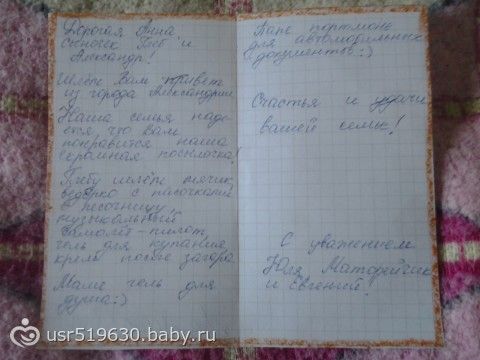 Дорогая Анна
сыночек Глеб и
Александр!
Шлём Вам привет
из города Александрии
Наша семья наде-
ется, что вам
понравится наша
скромная посылочка!
Глебу шлём мячик,
ведёрко с пасочками
в песочницу,
музыкальный
самолёт-пилот,
гель для купания,
крем после загара
Маме гель для
душа:)
Папе портмоне
для автомобильных
документов:)
Счастья и удачи
вашей семье!
С уважением
Юля, Матвейчик
и Евгений.
usr519630.baby.ru